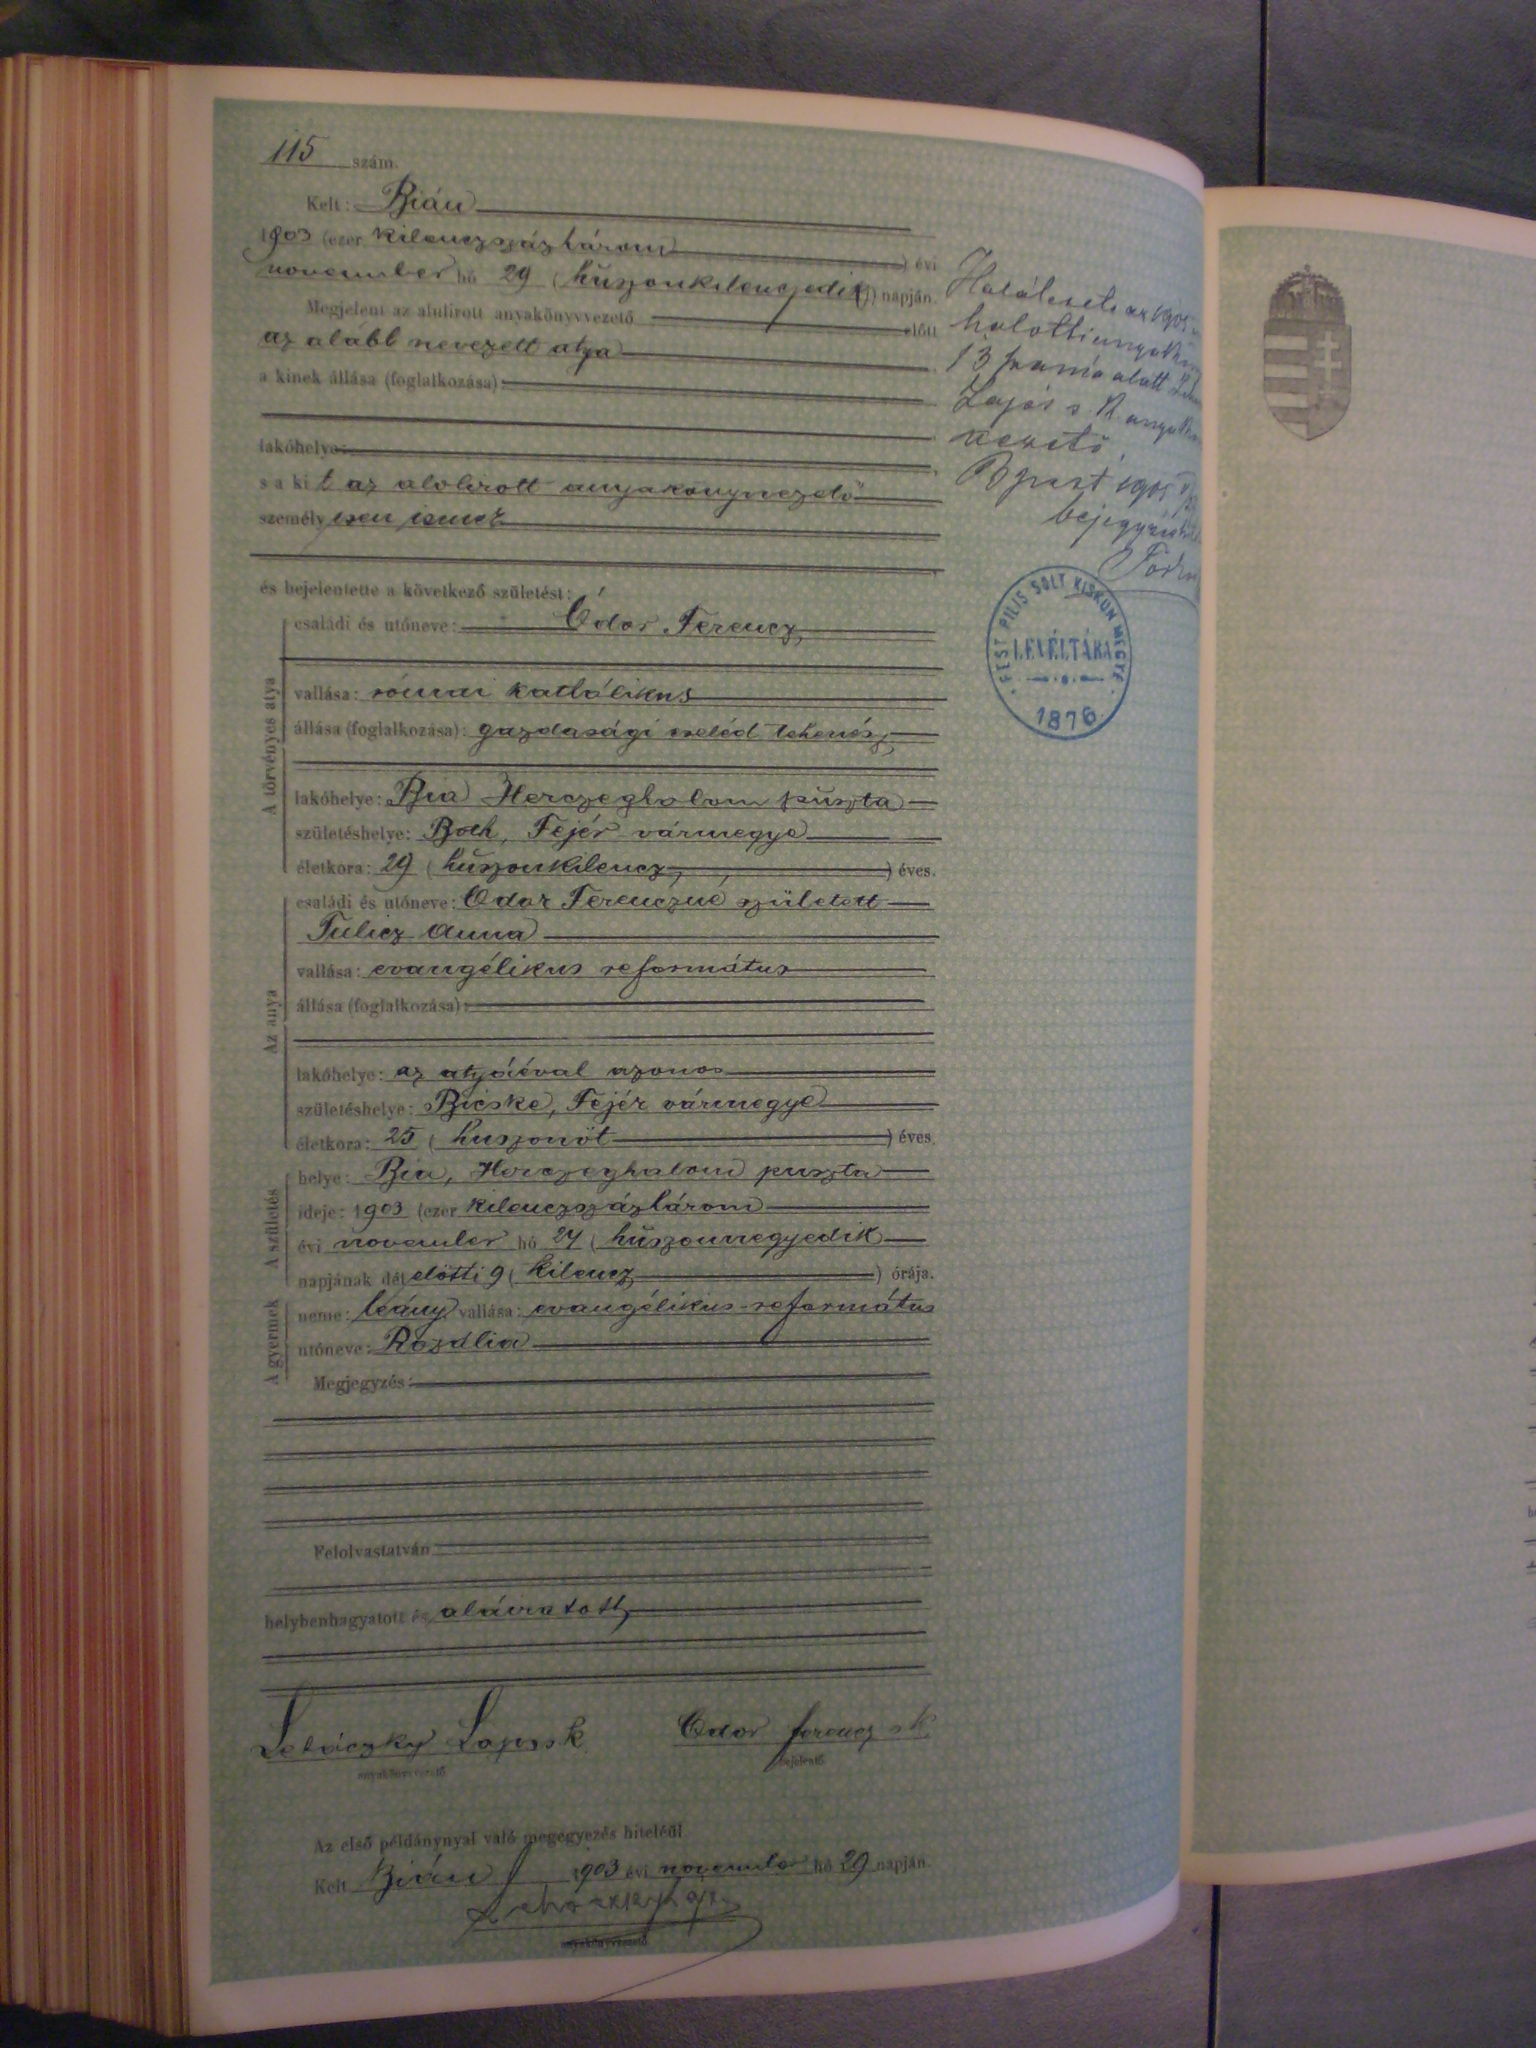 115 szám.
Kelt: Bián
1903 (ezer kilenczszázhárom) évi
november hó 29 (huszonkilenczedik) napján.
Megjelent az alulirott anyakönyvvezető előtt
az alább nevezett atya
a kinek állása (foglalkozása):
lakóhelye:
s a kit az alolirott anyakönyvvezető
személyesen ismer
és bejelentette a következő születést:
A törvényes atya
családi és utóneve: Ódor Ferencz
vallása: római katholikus
állása (foglalkozása): gazdasági cseléd tehenész
lakóhelye: Bia Herczeghalom puszta
születéshelye: Both, Fejér vármegye
életkora: 29 (huszonkilencz) éves.
Az anya
családi és utóneve: Odor Ferenczné született
Tulicz Anna
vallása: evangélikus református
állása (foglalkozása):
lakóhelye: az atyáéval azonos
születéshelye: Bicske, Fejér vármegye
életkora: 25 (huszonöt) éves.
A születés
helye: Bia, Herczeghalom puszta
ideje: 1903 (ezer kilenczszázhárom
évi november hó 24 (huszonnegyedik
napjának délelőtti 9 (kilencz) órája.
A gyermek
neme: leány vallása: evangélikus-református
utóneve: Rozália
Megjegyzés:
Felolvastatván
helybenhagyatott és aláiratott
Lajos s k Odor Ferencz s k
anyakönyvvezető bejelentő
Az első példánynyal való megegyezés hiteléül
Kelt Bián 1903 évi november hó 29 napján.
anyakönyvvezető
Haláleset az 1905
halotti
13 száma alatt
Lajos s. k.
vezető
Bpest 1905
PEST PILIS SOLT KISKUN MEGYE
LEVÉLTÁRA
1876